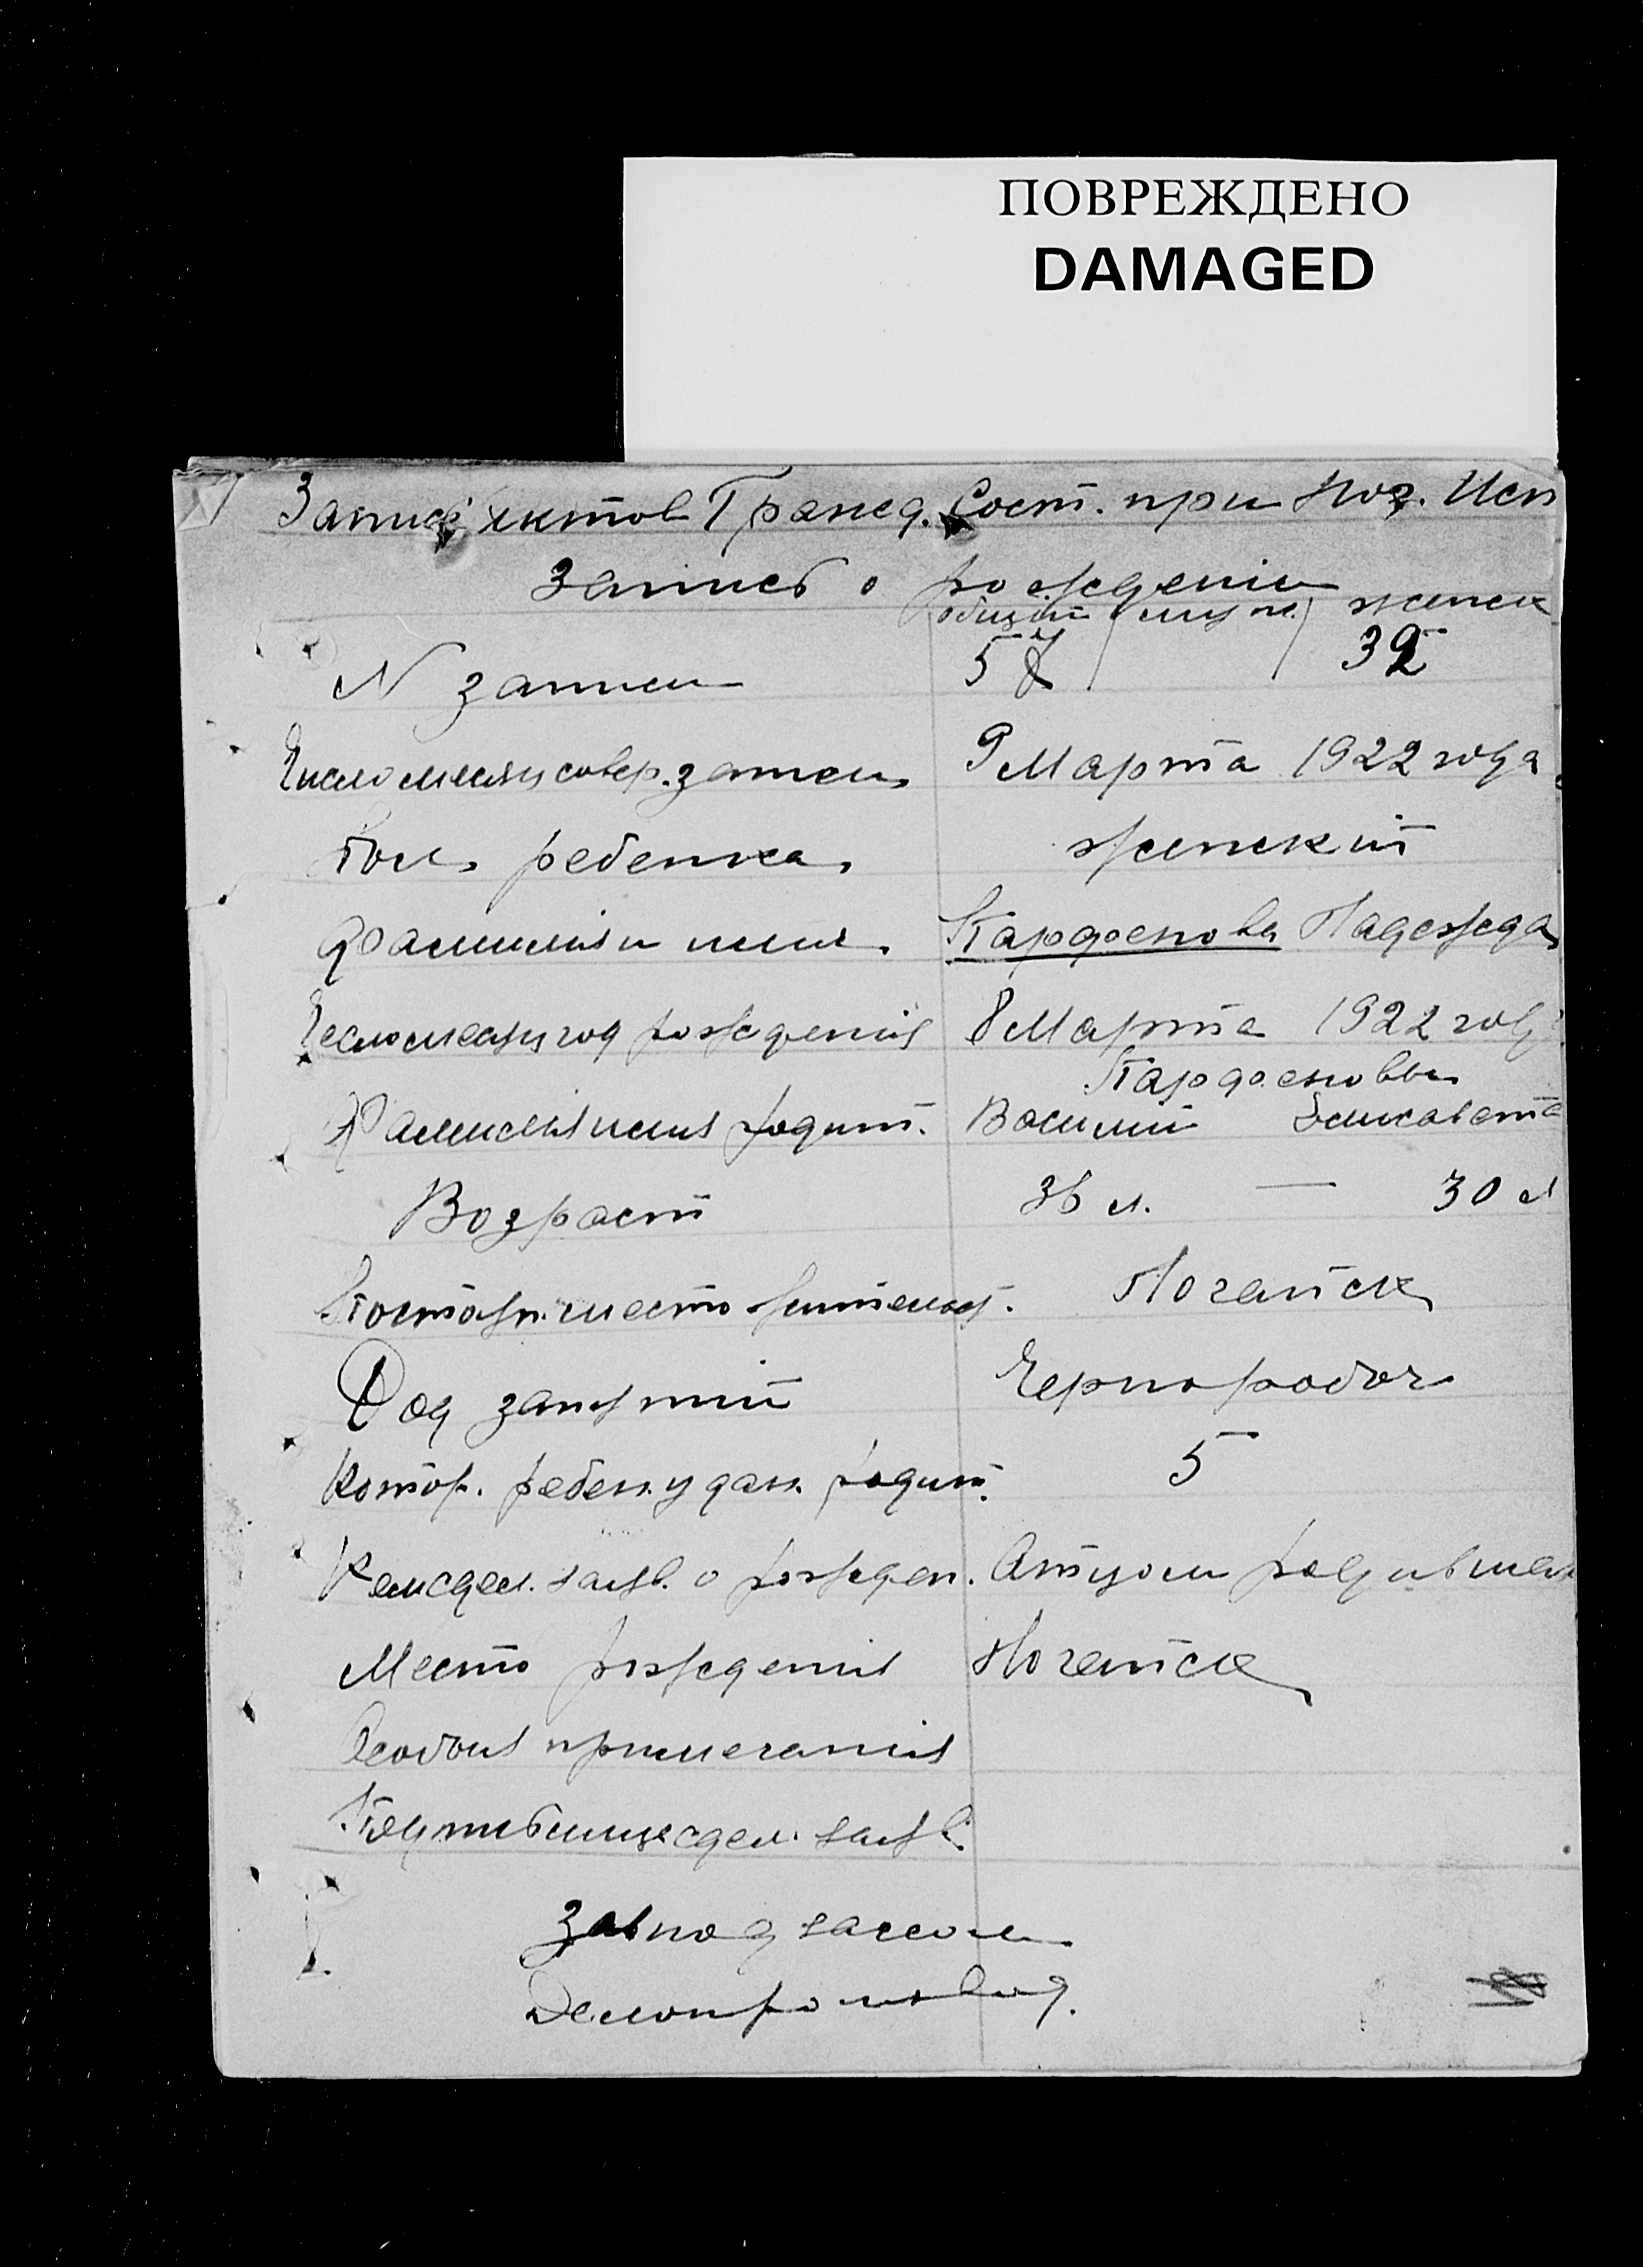 ПОВРЕЖДЕНО
DAMAGED
Запись актов Гражд. Сост. при Ног. Исп
Запись о рождении
общий муж. женск
N записи 57 32
Число месяц совер. записи 9 Марта 1922 года
Пол ребенка женский
Фамилия и имя Парфенова Надежда
Число месяц год рождения 8 Марта 1922 год
Парфеновы
Фамилия имя родит. Василий Елисавета
Возраст 36 л. — 30 л
Постоян. место жительст. Ногайск
Род занятий Чернорабоч
Котор. ребен. у дан. родит. 5
Кем сдел. заяв. о рожден. Отцом
Место рождения Ногайск
Особыя примечания
сдел. заяв.
Завподзагсом
Делопроизвод.